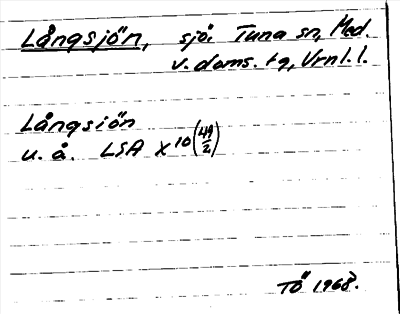 Långsjön, sjö. Tuna sn, Med.
v. doms. tg, Vrnl. l.
Långsiön
u. å. LSA X 10 (49/2)
Tö 1968.